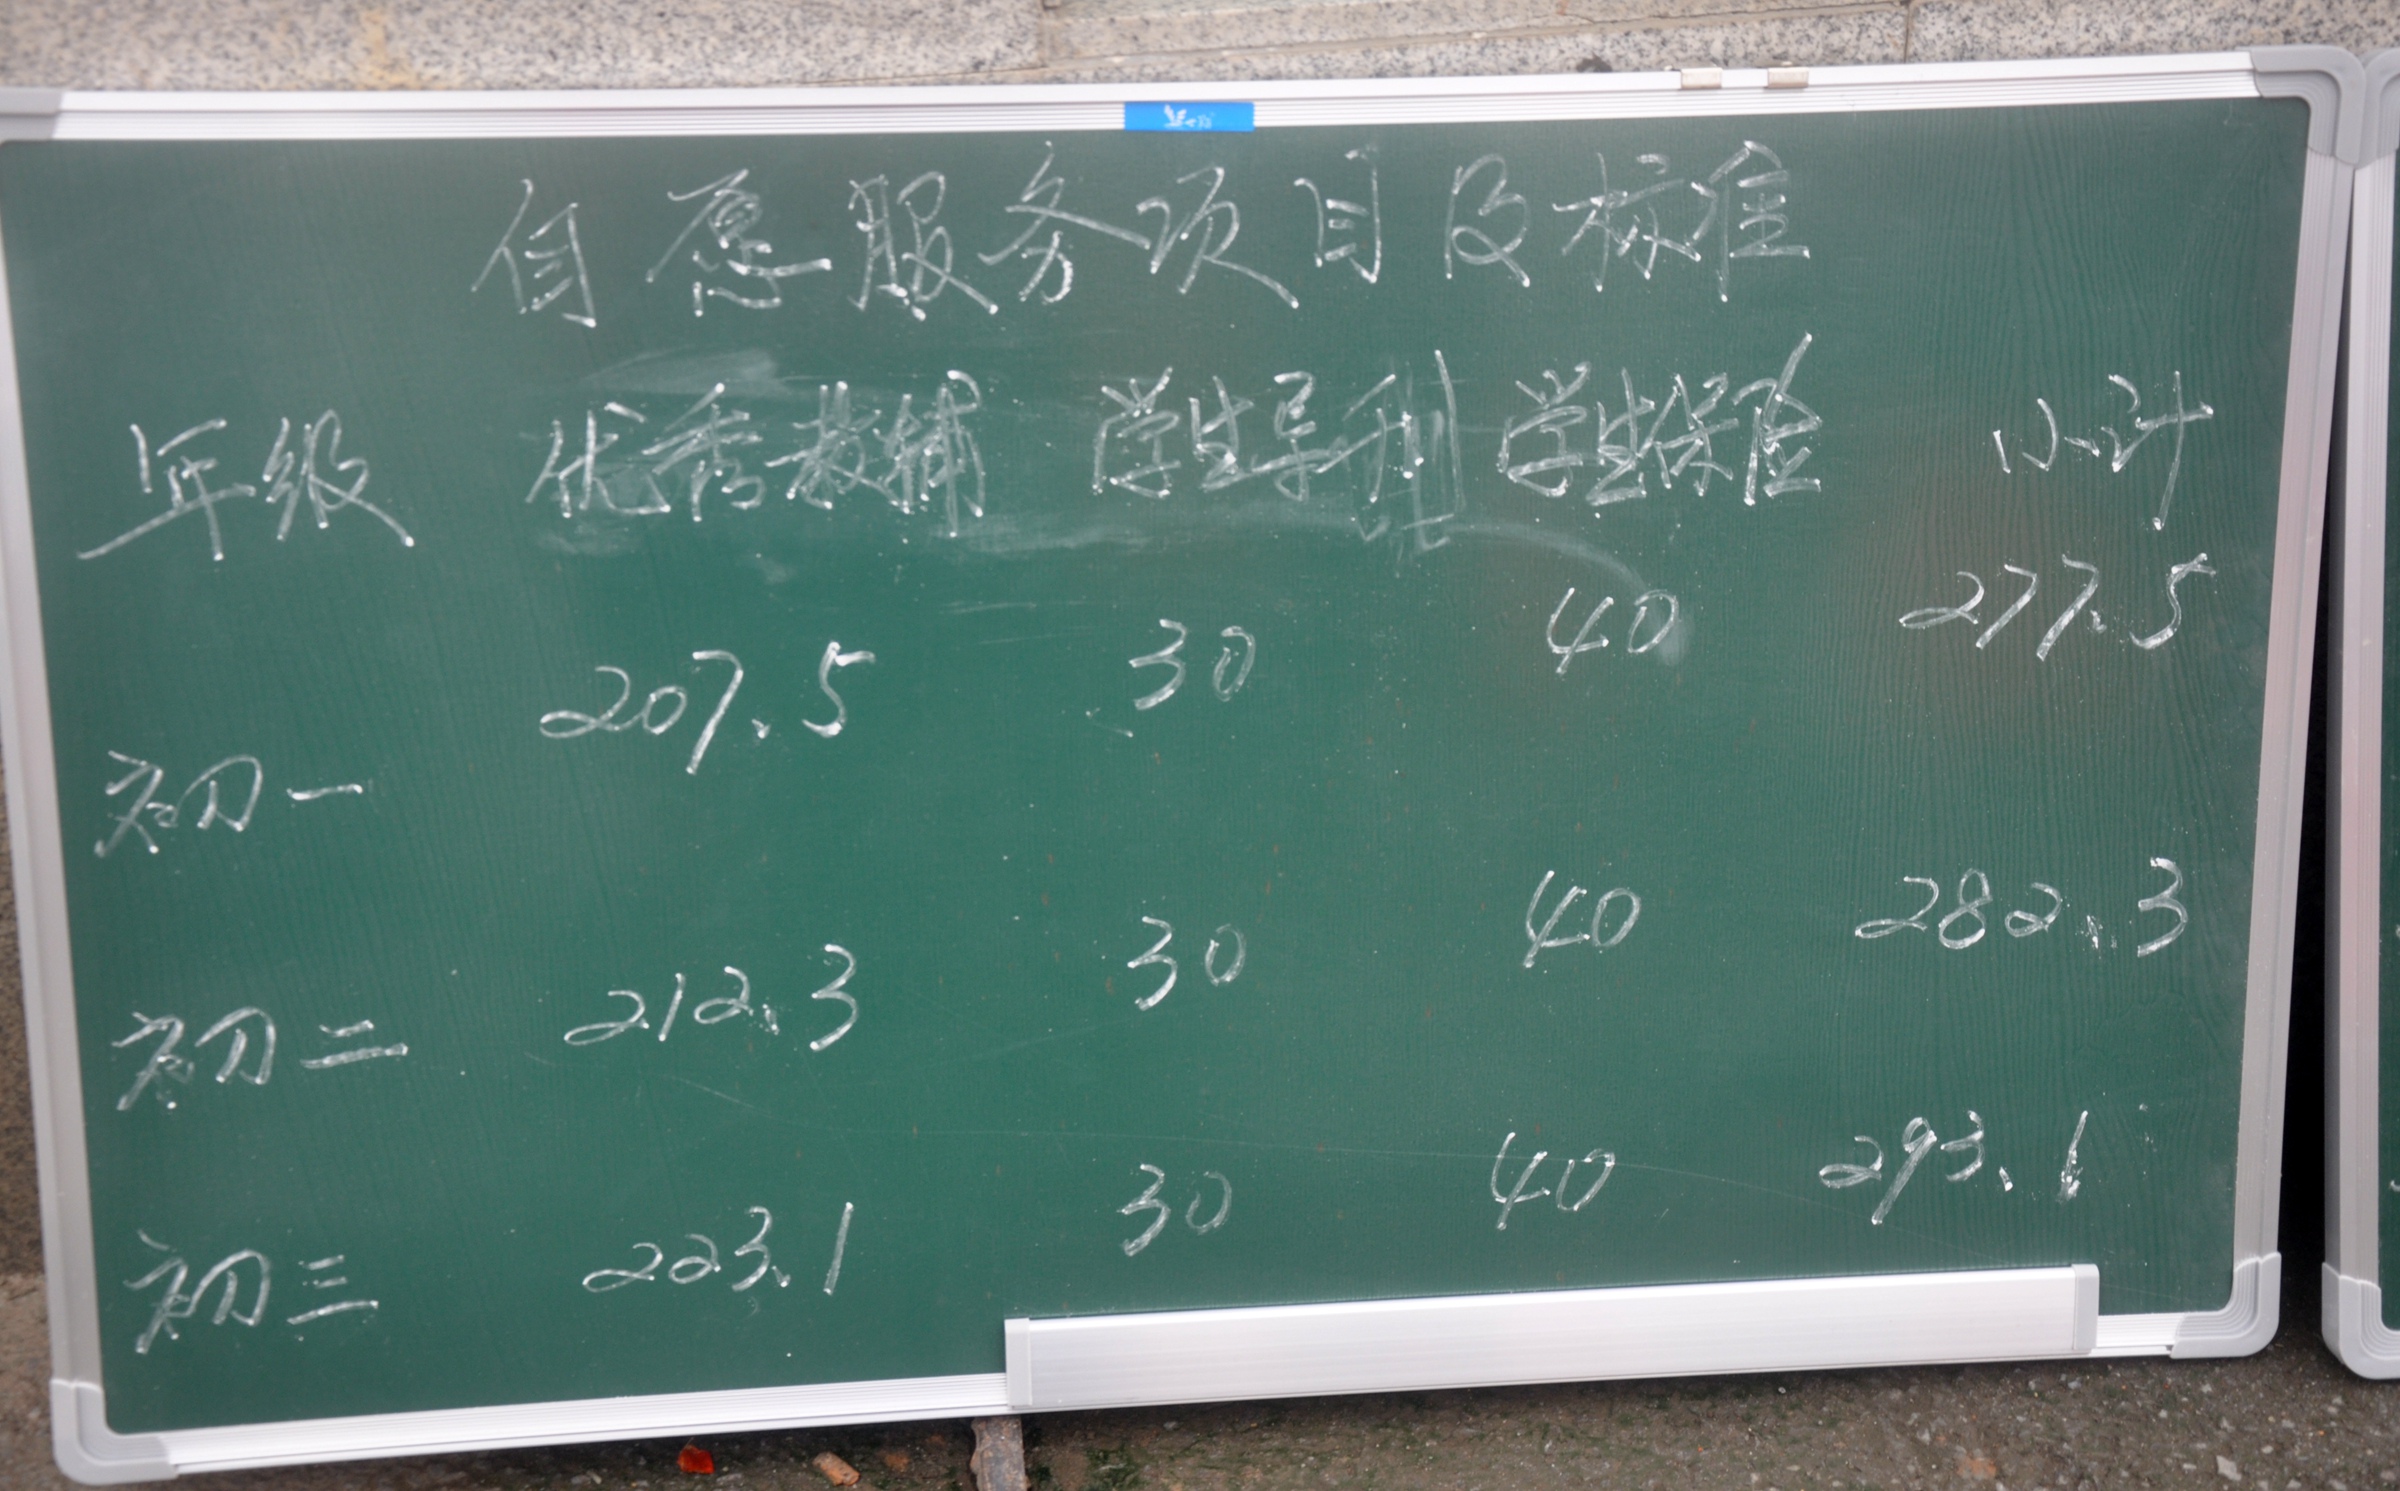 自愿服务项目及标准
年级 优秀教辅 学生导刊 学生保险 小计
初一 207.5 30 40 277.5
初二 212.3 30 40 282.3
初三 223.1 30 40 293.1